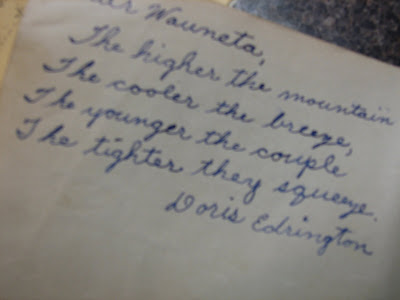 Dear Wauneta,
The higher the mountain
The cooler the breeze,
The younger the couple
The tighter they squeeze.
Doris Edrington